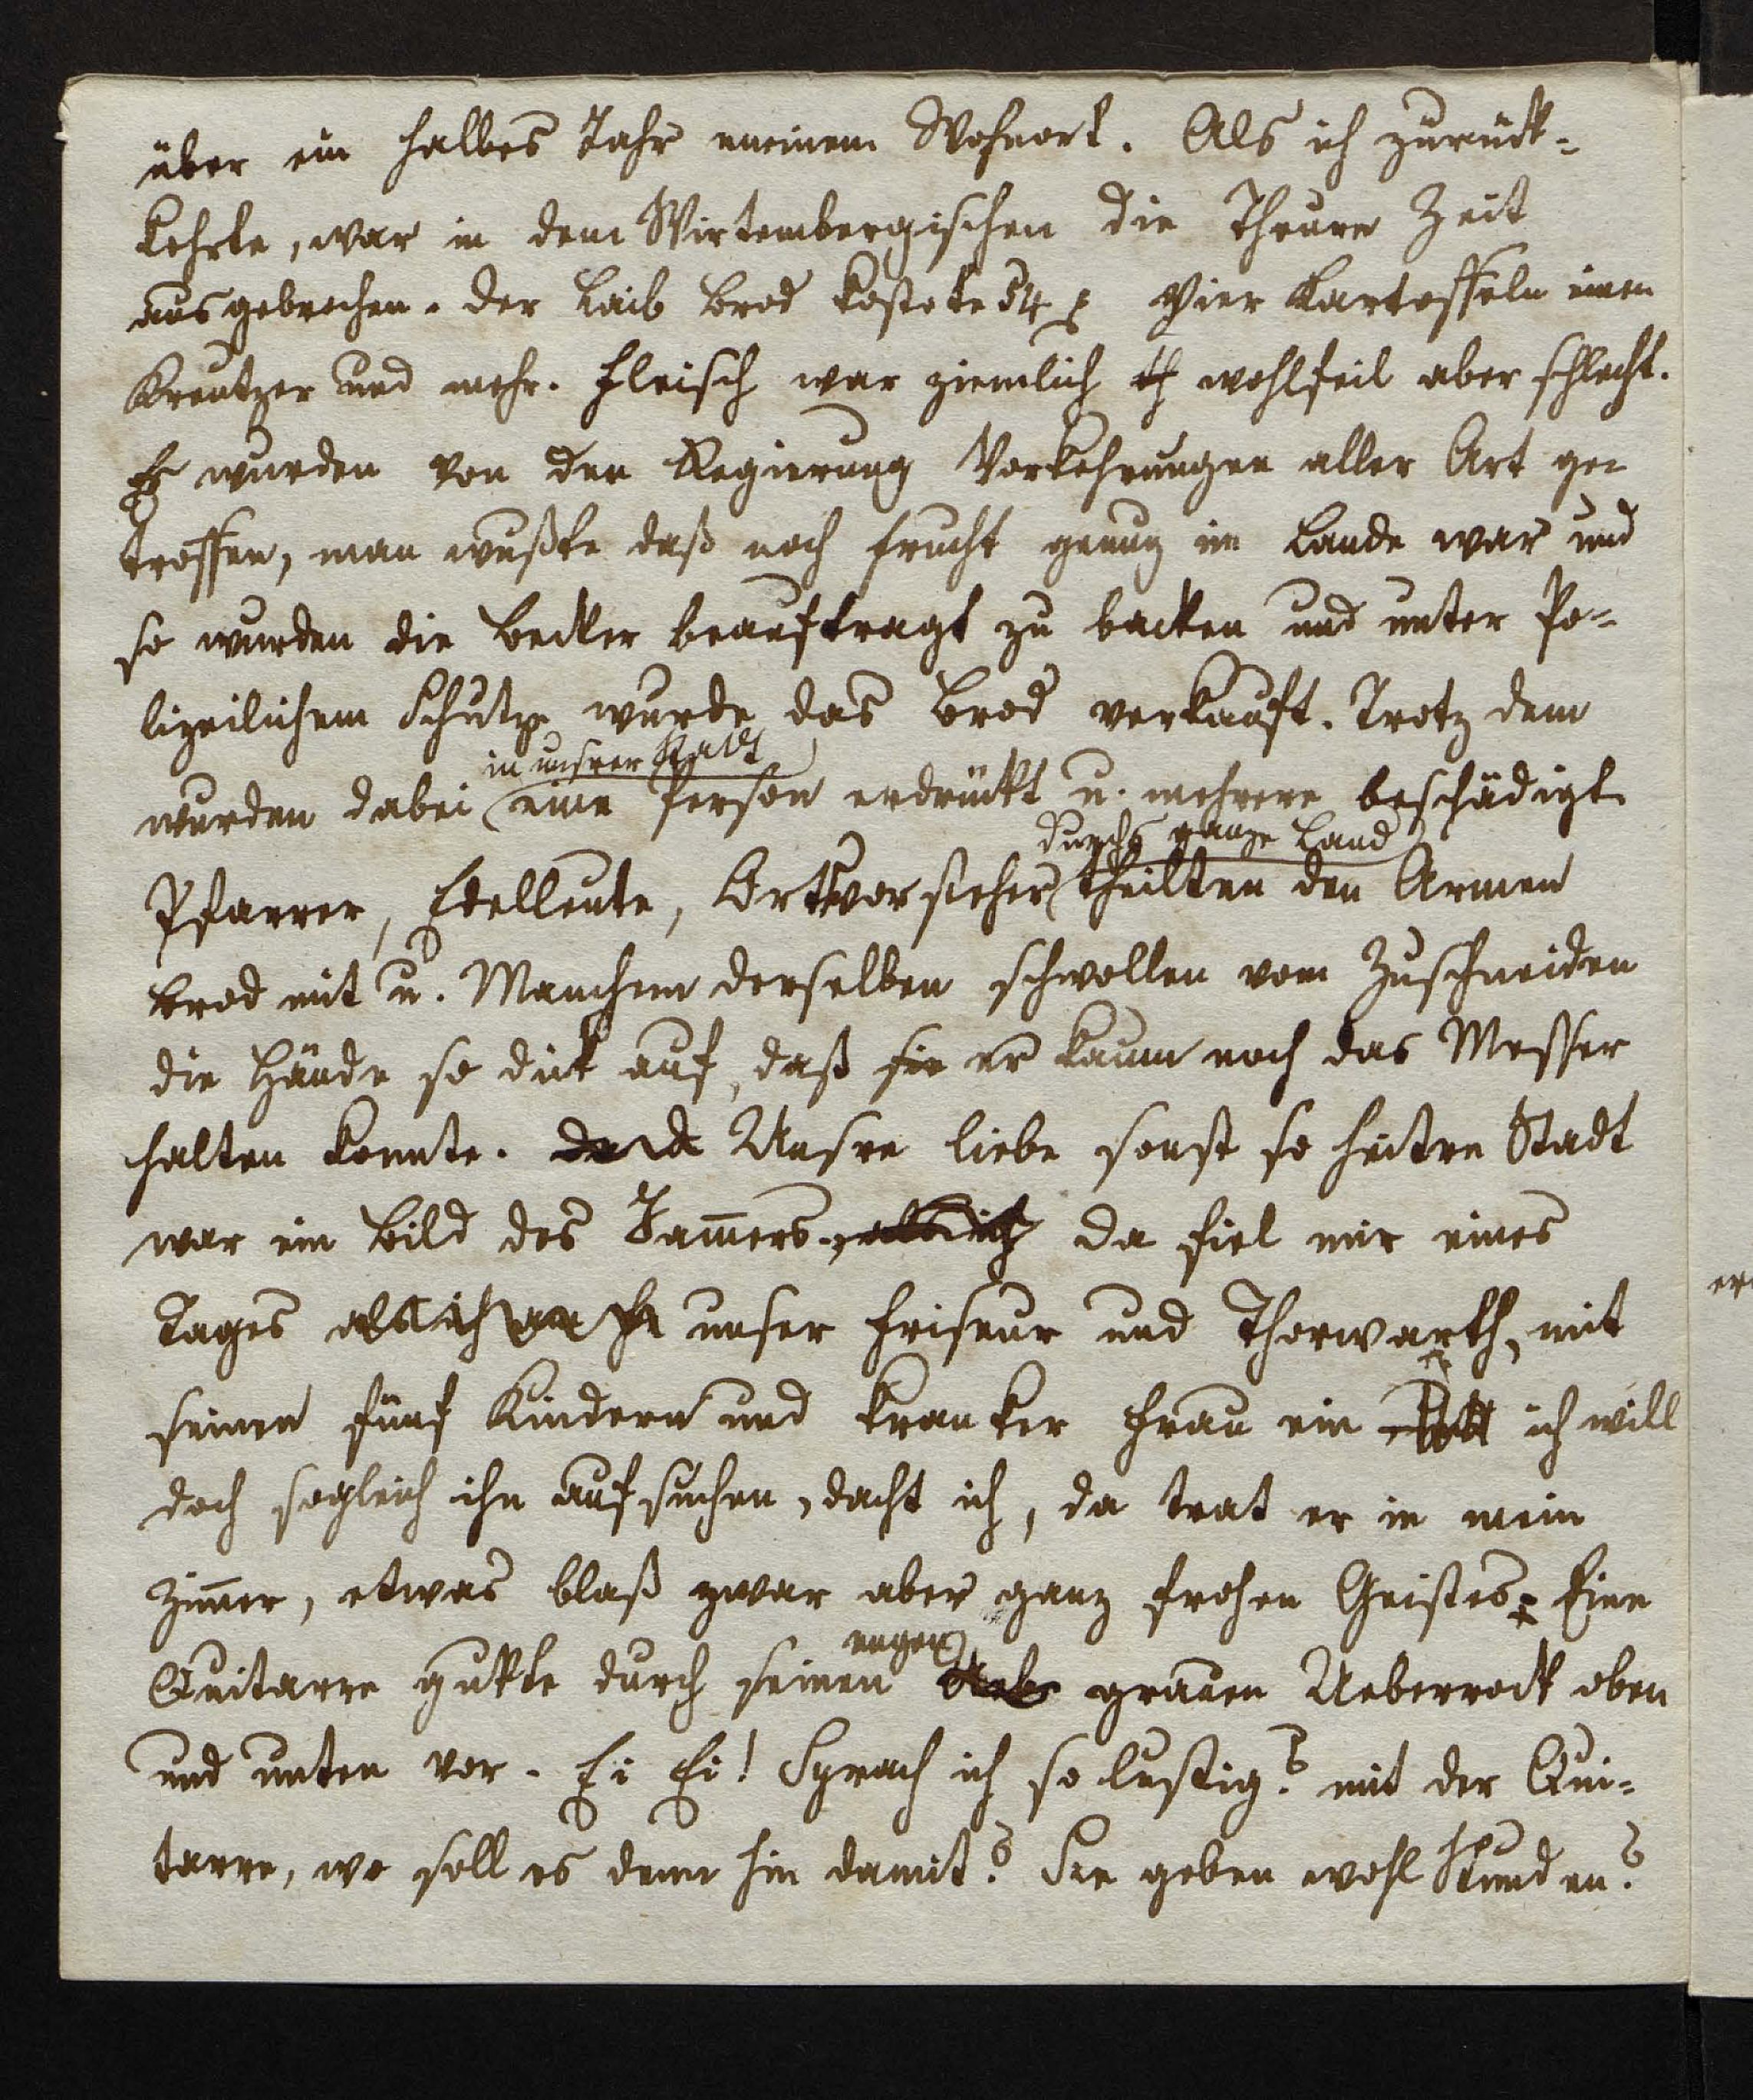 über ein halbes Jahr meinem Wohnort. Als ich zurück-
kehrte, war in dem Wirtembergischen die Theure Zeit
ausgebrochen. der Laib Brod kostete 54 x Vier Kartoffeln einen
Kreutzer und mehr. Fleisch war ziemlich wohlfeil aber schlecht.
Es wurden von der Regierung Vorkehrungen aller Art ge-
troffen, man wußte daß noch Frucht genug im Lande war und
so wurden die Becker beauftragt zu backen und unter Po-
lizeilichem Schutze wurde das Brod verkauft. Trotz dem
in unsrer Stadt
wurden dabei eine Person erdrückt u. mehrere beschädigt
durchs ganze Land
Pfarrer, Edelleute, Ortsvorsteher theilten den Armen
Brod mit u. Manchem derselben schwollen vom Zuschneiden
die Hände so dick auf, daß sie er kaum noch das Messer
halten konnte. Unsre liebe sonst so heitre Stadt
war ein Bild des Jam̄ers. als ich da fiel mir eines
Tages als ich unser Friseur und Thorwarth, mit
seinen fünf Kindern und kranker Frau ein ich will
doch sogleich ihn aufsuchen, dacht ich, da trat er in mein
Zim̄er, etwas blaß zwar aber ganz frohen Geistes. Eine
engen
Quitarre gukte durch seinen Uebe grauen Ueberrock oben
und unten vor. Ei Ei! Sprach ich so lustig? mit der Qui-
tarre, wo soll es denn hin damit? Sie geben wohl Stunden?
er